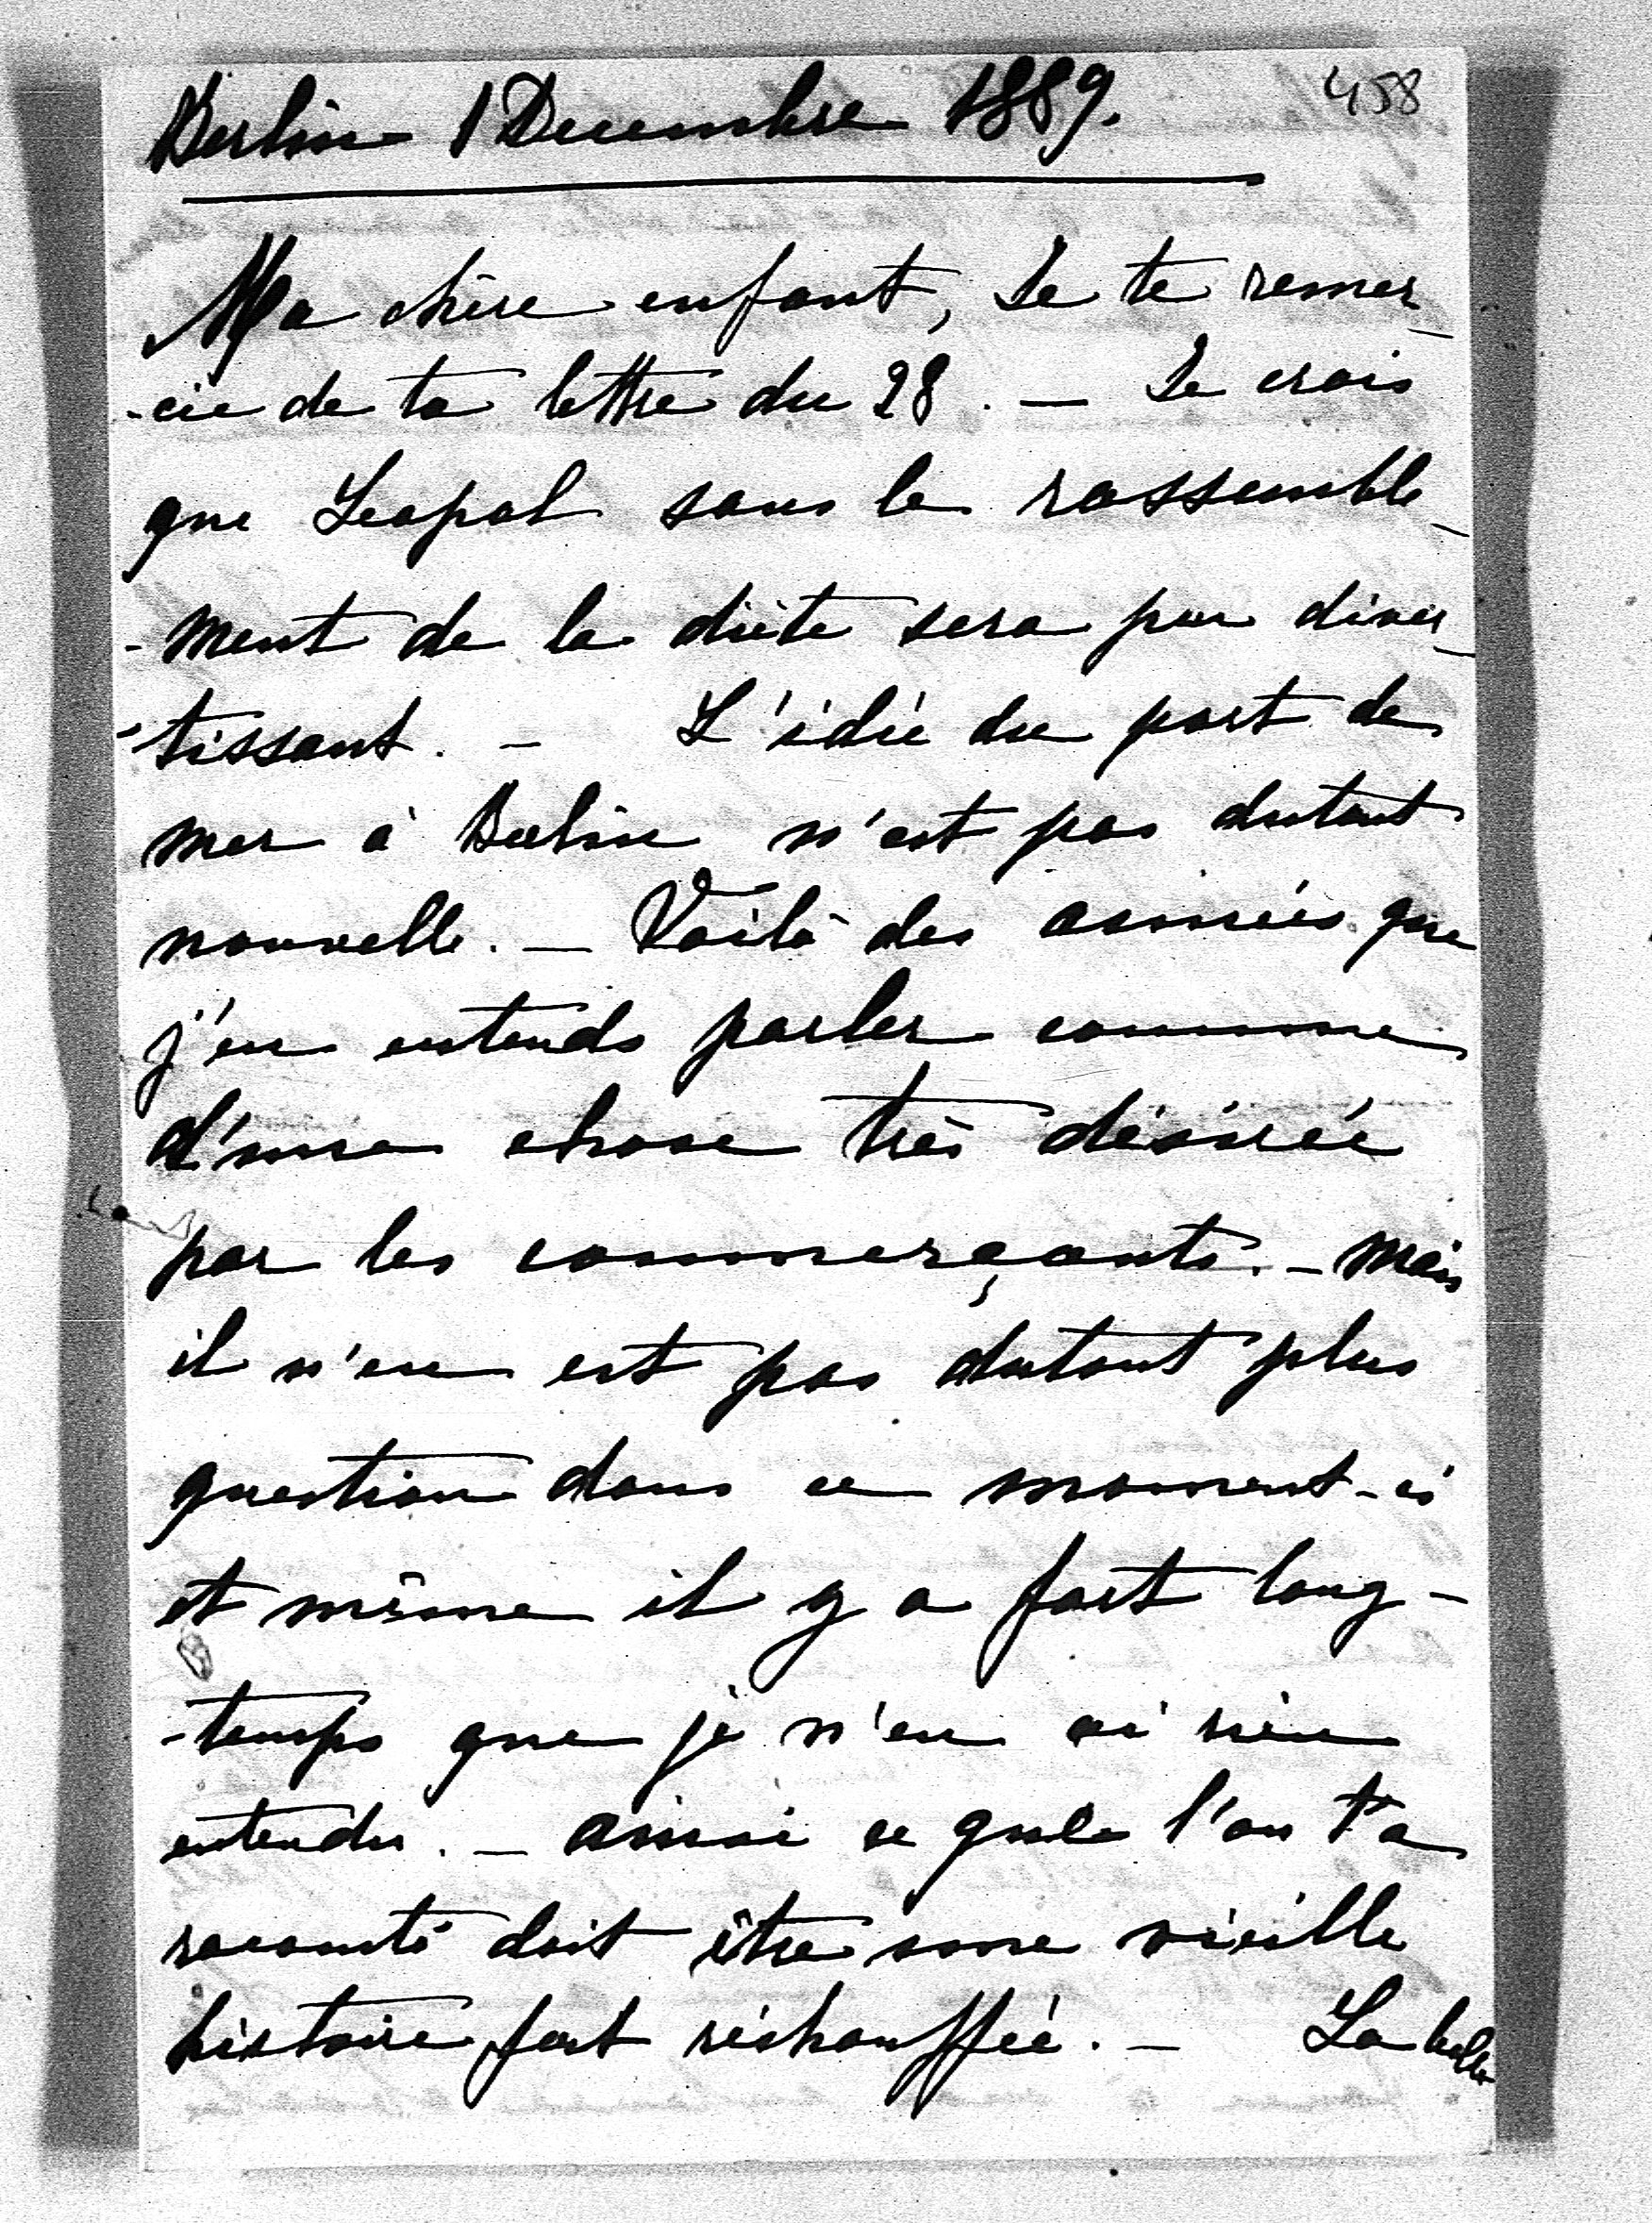 458
Berlin 1 Decembre 1889.
Ma chère enfant, Je te remer-
-cie de ta lettre du 28. — Je crois
que Leopol sans le rassemble-
-ment de la diète sera peu diver-
-tissant. — L'idée du port de
mer à Berlin n'est pas dutout
nouvelle. — Voilà des années que
j'en entends parler comme
d'une chose très désirée
par les commerçants. — Mais
il n'en est pas dutout plus
question dans ce moment-ci
et même il y a fort long-
-temps que je n'en ai rien
entendu. — Ainsi ce que l'on t'a
raconté doit être une vieille
histoire fort réchauffée. — La belle